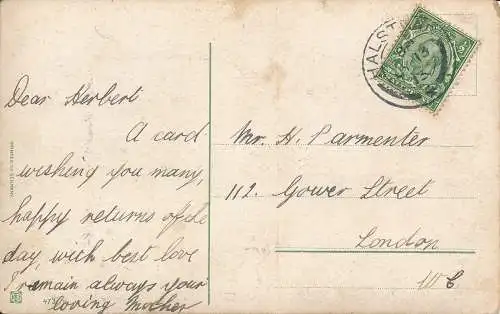 Dear Herbert
A card
wishing you many,
happy returns of the
day, with best love
I remain always your
loving Mother
Mr. H. Parmenter
112. Gower Street
London
W C
HALST